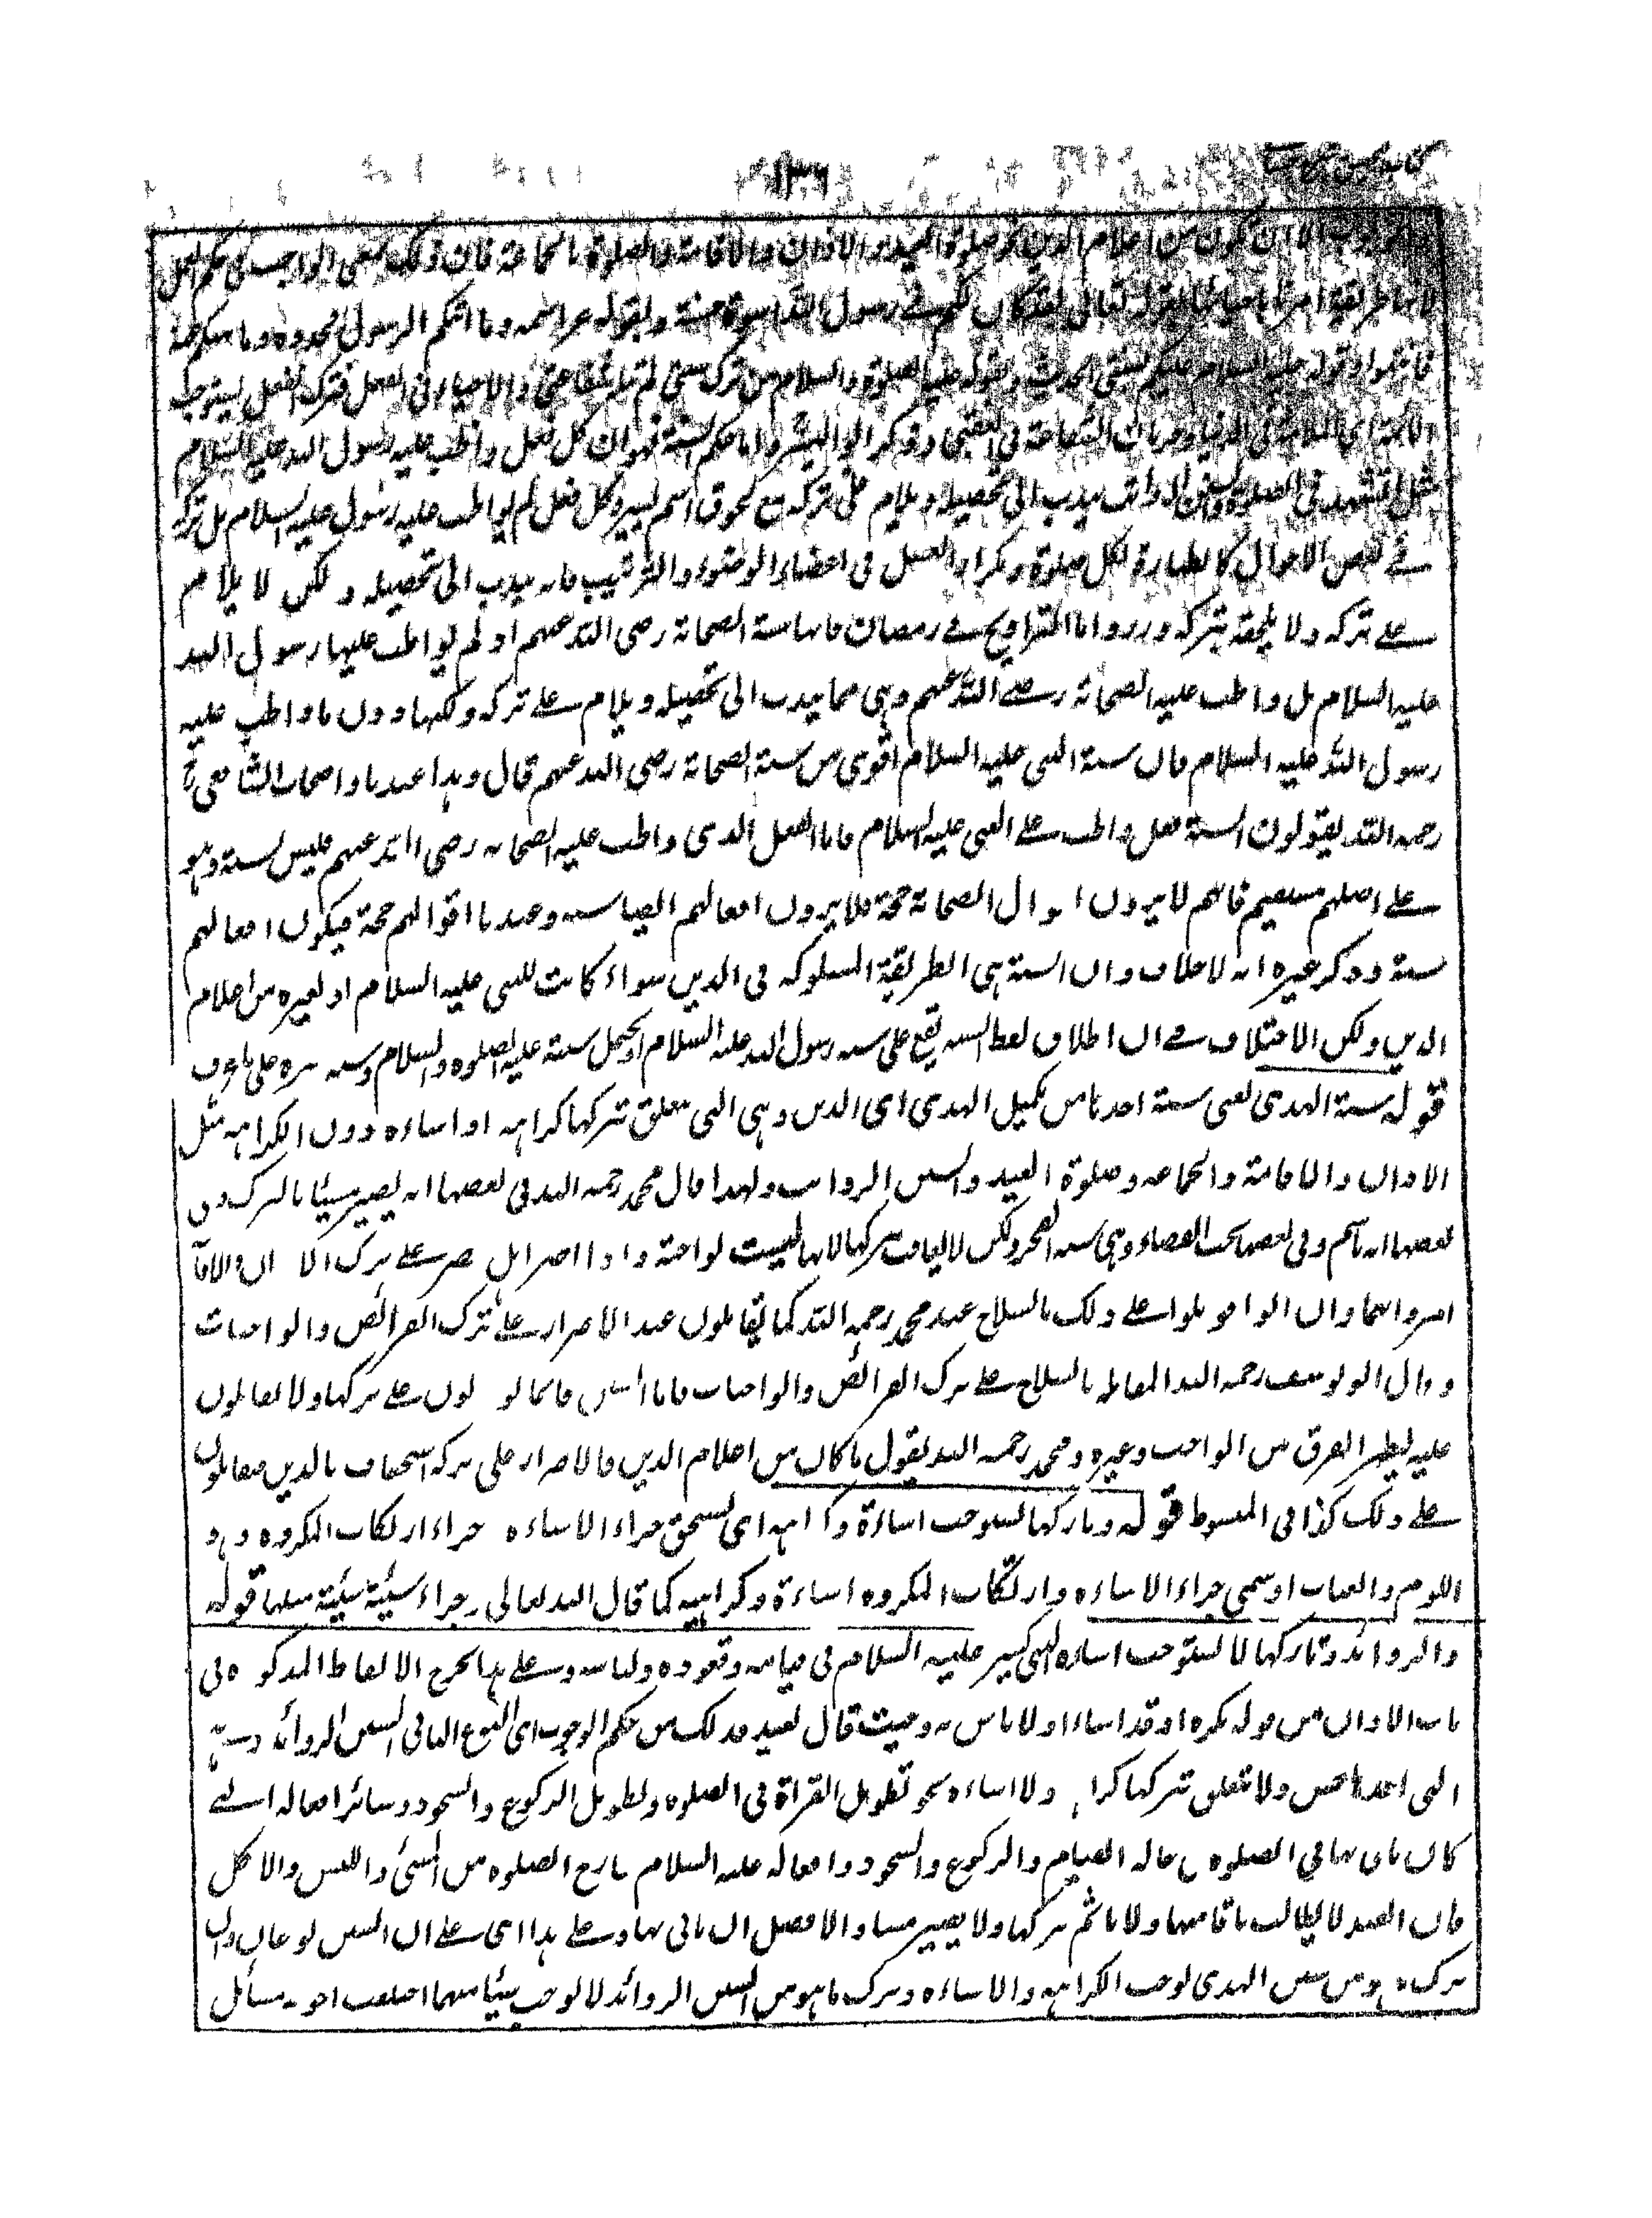 ١٣٦
الا ان تكون من اعلام الدين نحو صلوة العيد والاذان والاقامة والصلوة بالجماعة فان ذلك بمعنى الواجب فى حكم العمل
لانها طريقة امرنا باحيائها بقوله تعالى لقد كان لكم فى رسول الله اسوة حسنة وبقوله عز اسمه وما اتكم الرسول فخذوه وما نهكم عنه
فانتهوا وقوله عليه السلام عليكم بسنتى الحديث وبقوله عليه الصلوة والسلام من ترك سنتى لم تنله شفاعتى والاحياء فى الفعل فترك الفعل يستوجب
اللائمة اى الملامة فى الدنيا وحرمان الشفاعة فى العقبى وذكر ابو اليسر واما حكم السنة فهو ان كل فعل واظب عليه رسول الله عليه السلام
مثل التشهد فى الصلوة والسنن الرواتب يندب الى تحصيله ويلام على تركه مع لحوق اثم يسير وكل فعل لم يواظب عليه رسول عليه السلام بل تركه
فى بعض الاحوال كالطهارة لكل صلوة وتكرار الغسل فى اعضاء الوضوء والترتيب فانه يندب الى تحصيله ولكن لا يلام
على تركه ولا يلحقه بتركه وزر واما التراويح فى رمضان فانها سنة الصحابة رضى الله عنهم اذ لم يواظب عليها رسول الله
عليه السلام بل واظب عليه الصحابة رضى الله عنهم وهى مما يندب الى تحصيله ويلام على تركه ولكنها دون ما واظب عليه
رسول الله عليه السلام فان سنة النبى عليه السلام اقوى من سنة الصحابة رضى الله عنهم قال وهذا عندنا واصحاب الشافعى
رحمه الله يقولون السنة فعل واظب عليه النبى عليه السلام فاما الفعل الذى واظب عليه الصحابه رضى الله عنهم فليس بسنة وهو
على اصلهم مستقيم فانهم لا يرون اقوال الصحابة حجة فلا يرون افعالهم ايضا سنه وعندنا اقوالهم حجة فيكون افعالهم
سنة وذكر غيره انه لا خلاف فى ان السنة هى الطريقة المسلوكه فى الدين سواء كانت للنبى عليه السلام او لغيره من اعلام
الدين ولكن الاختلاف فى ان اطلاق لفظ السنه يقع على سنه رسول الله عليه السلام او يحتمل سنته عليه الصلوه والسلام وسنه غيره على ما عرف
قوله سنة الهدى يعنى سنة اخذها من تكميل الهدى اى الدين وهى التى تعلق بتركها كراهيه او اساءه دون الكراهيه مثل
الاذان والاقامة والجماعه وصلوة العيد والسنن الرواتب ولهذا قال محمد رحمه الله فى بعضها انه يصير مسيئا بالترك وفى
بعضها انه يأثم وفى بعضها يجب القضاء وهى سنه الفجر ولكن لا يعاقب بتركها لانها ليست بواجبة واذا اصر اهل مصر على ترك الاذان والاقامة
امروا بهما وان ابوا قوتلوا على ذلك بالسلاح عند محمد رحمه الله كما يقاتلون عند الاصرار على ترك الفرائض والواجبات
وقال ابو يوسف رحمه الله المقاتله بالسلاح على ترك الفرائض والواجبات فاما السنن فانما يؤدبون على تركها ولا يقاتلون
عليه ليظهر الفرق بين الواجب وغيره ومحمد رحمه الله يقول ما كان من اعلام الدين فالاصرار على تركه استخفاف بالدين فيقاتلون
على ذلك كذا فى المبسوط قوله وتاركها يستوجب اساءة وكراهيه اى يستحق جزاء الاساءه جزاء ارتكاب المكروه وهو
اللوم والعتاب او سمى جزاء الاساءه وارتكاب المكروه اساءة وكراهيه كما قال الله تعالى وجزاء سيئة سيئة مثلها قوله
والزوائد وتاركها لا يستوجب اساءه كسير النبى عليه السلام فى قيامه وقعوده ولباسه وعلى هذا تخرج الالفاظ المذكوره فى
باب الاذان من قوله يكره او قد اساء او لا باس به وحيث قال يعيد فذلك من حكم الوجوب اى النوع الثانى السنن الزوائد وهى
التى اخذها حسن ولا يتعلق بتركها كراهة ولا اساءه نحو تطويل القراة فى الصلوه وتطويل الركوع والسجود وسائر افعاله التى
كان ياتى بها فى الصلوه فى حاله القيام والركوع والسجود وافعاله عليه السلام خارج الصلوه من المشى واللبس والاكل
فان العبد لا يطالب باقامتها ولا ياثم بتركها ولا يصير مسيئا والافضل ان ياتى بها وعلى هذا اى على ان السنن نوعان وان
ترك ما هو من سنن الهدى يوجب الكراهيه والاساءه وترك ما هو من السنن الزوائد لا يوجب شيئا منهما اختلفت اجوبة مسائل